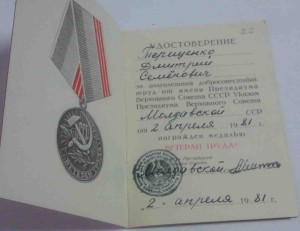 УДОСТОВЕРЕНИЕ
Терещенко
Дмитрий
Семёнович
за долголетний добросовестный
труд от имени Президиума
Верховного Совета СССР Указом
Президиума Верховного Совета
Молдавской ССР
от 2 апреля 1981 г.
награжден медалью
"ВЕТЕРАН ТРУДА"
Молдавской
"2" апреля 1981 г.